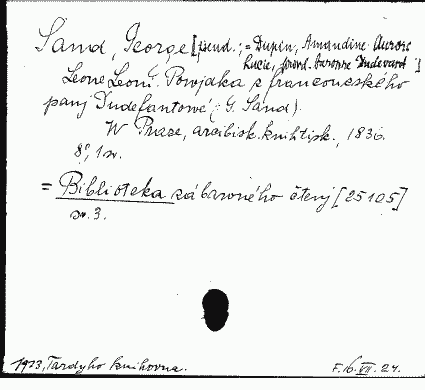 Sand, George [pseud.; = Dupin, Amandine Aurore
Lucie, provd. baronne Dudevant]
Leone Leoni. Powjdka z francouzského
panj Dudefantowé (: G. Sand).
W Praze, arcibisk. knihtisk., 1836.
8°, 1 sv.
= Biblioteka zábawného čtenj [25105]
sv. 3.
1923, Tardyho knihovna.
F. 16. VII. 24.